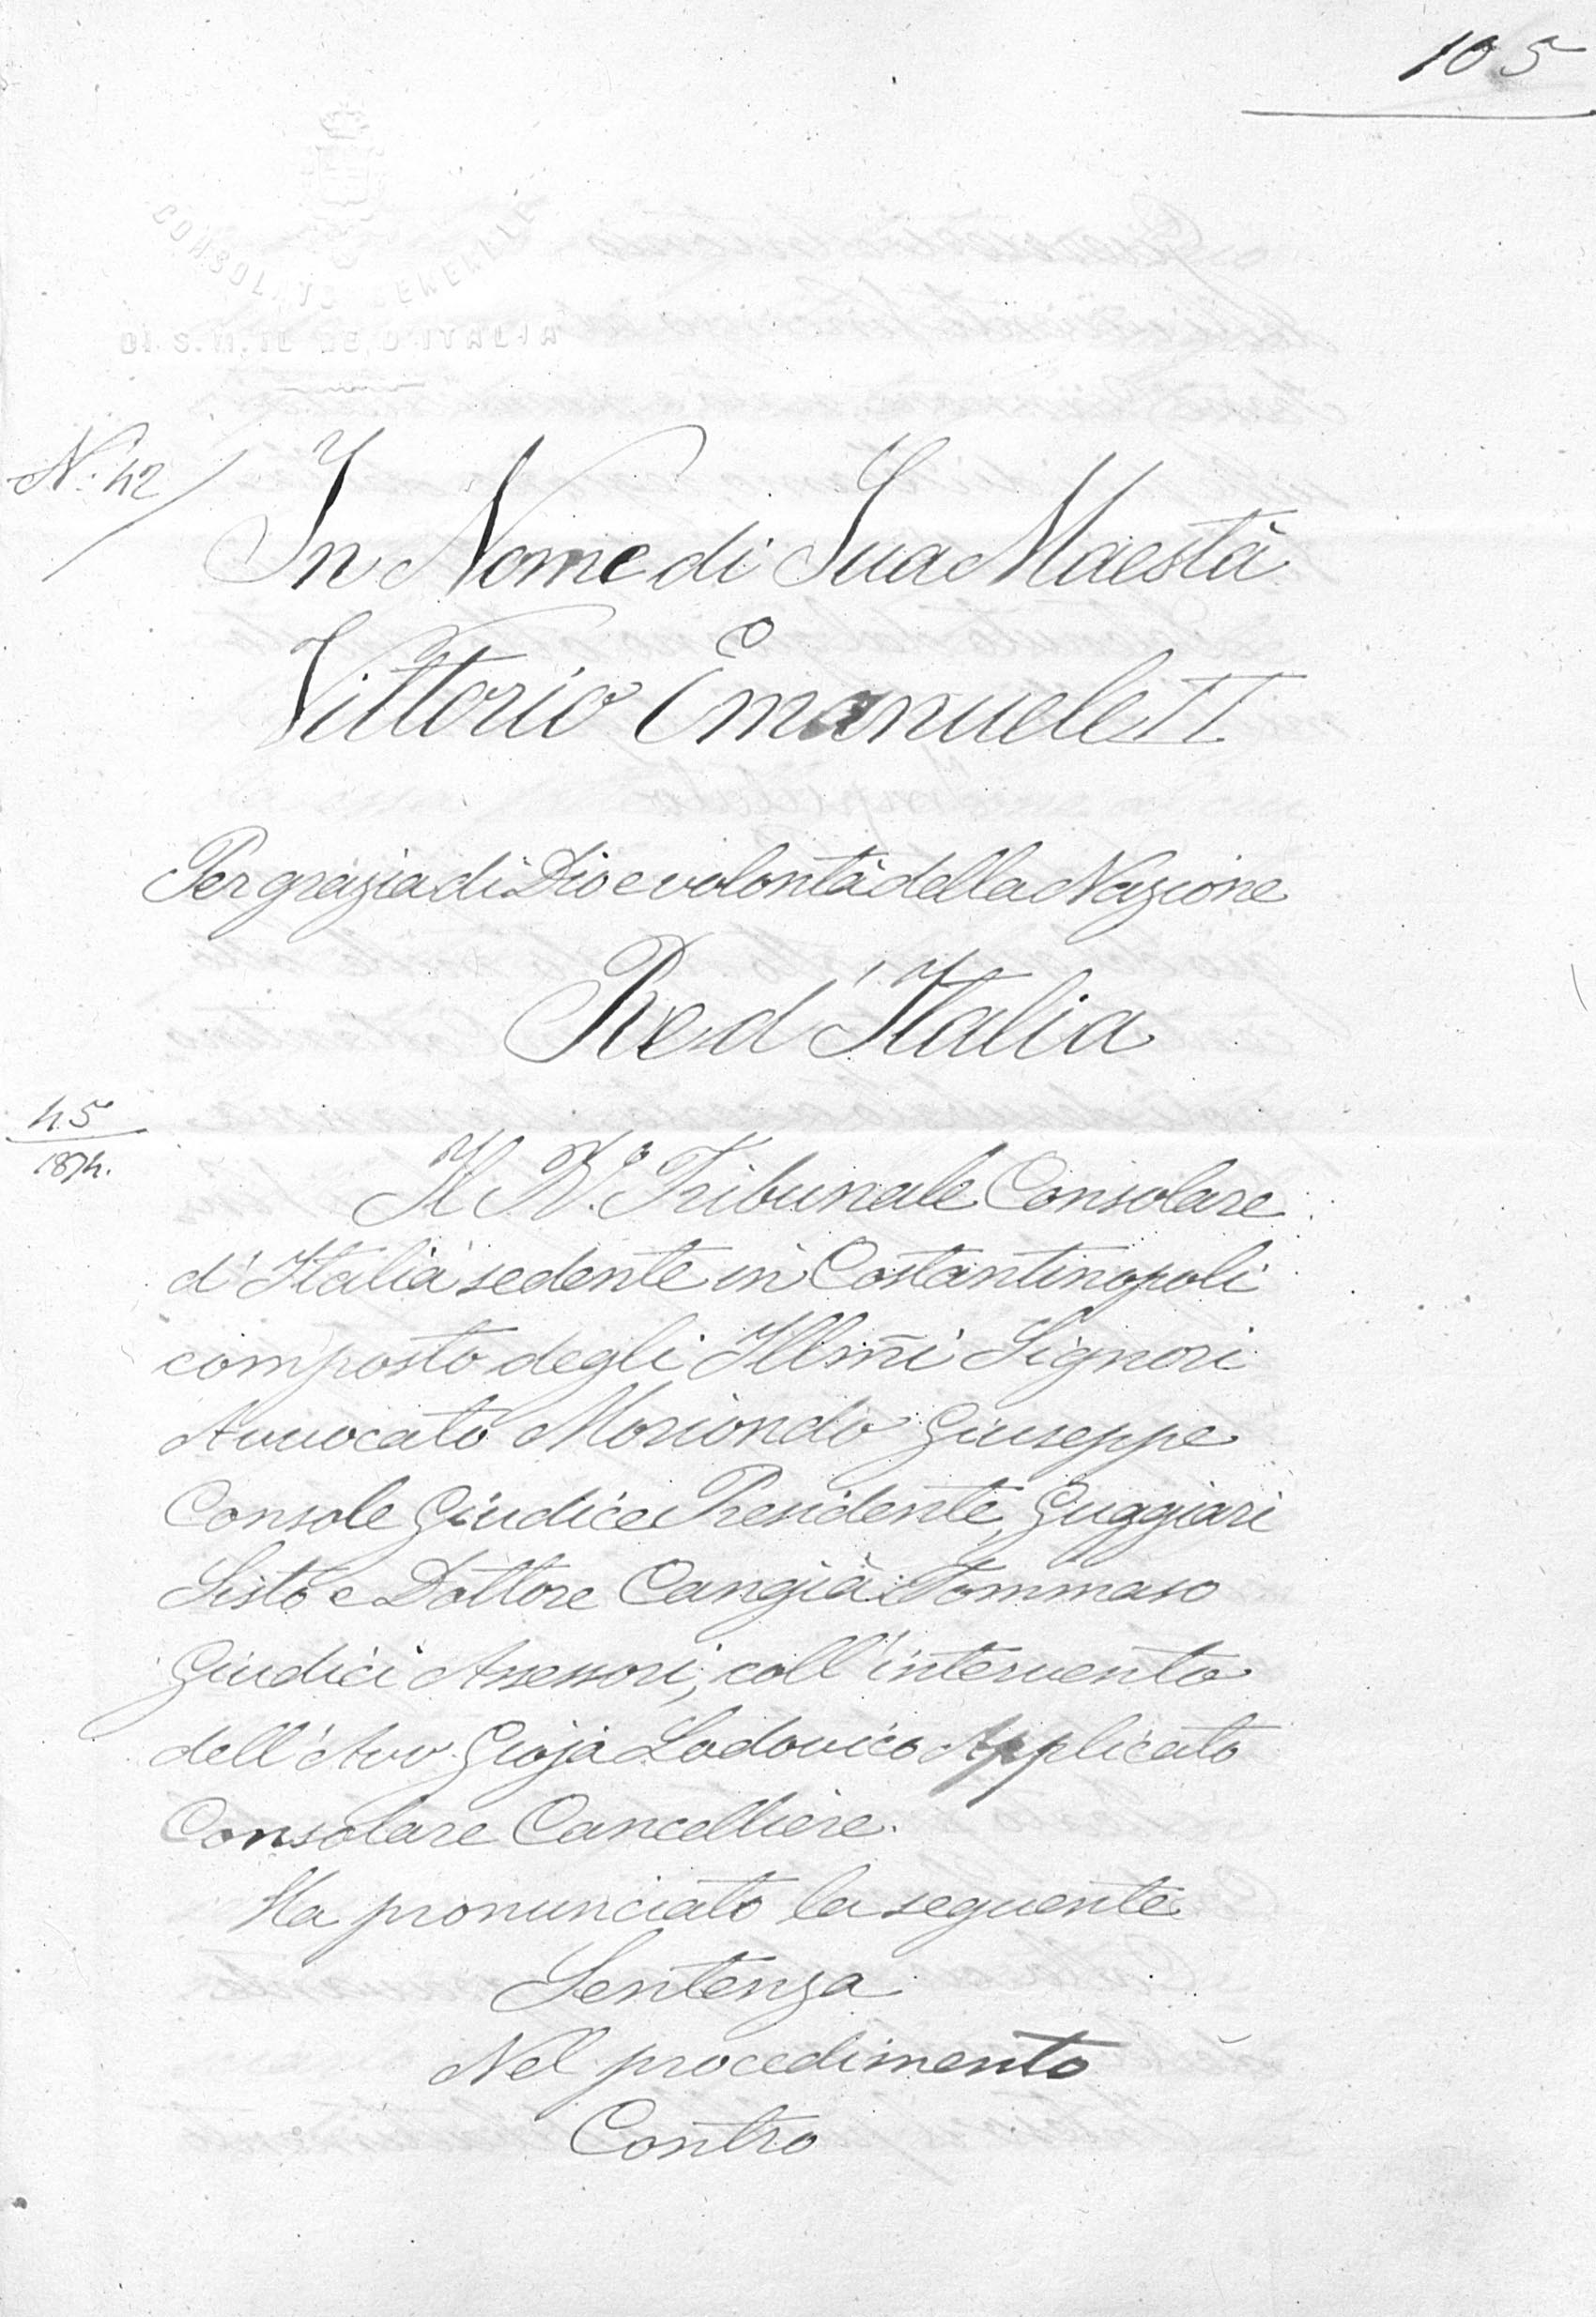 105
CONSOLATO GENERALE
DI S. M. IL RE D'ITALIA
N.º 42
In Nome di Sua Maestà
Vittorio Emanuele II
Per grazia di Dio e volontà della Nazione
Re d'Italia
45
1874.
Il R.º Tribunale Consolare
d'Italia sedente in Costantinopoli
composto degli Illm̃i Signori
Avvocato Moriondo Giuseppe
Console Giudice Presidente, Guggiari
Sisto e Dottore Cangià Tommaso
Giudici Assessori, coll'intervento
dell'Avv. Gioja Lodovico Applicato
Consolare Cancelliere.
Ha pronunciato la seguente
Sentenza
Nel procedimento
Contro